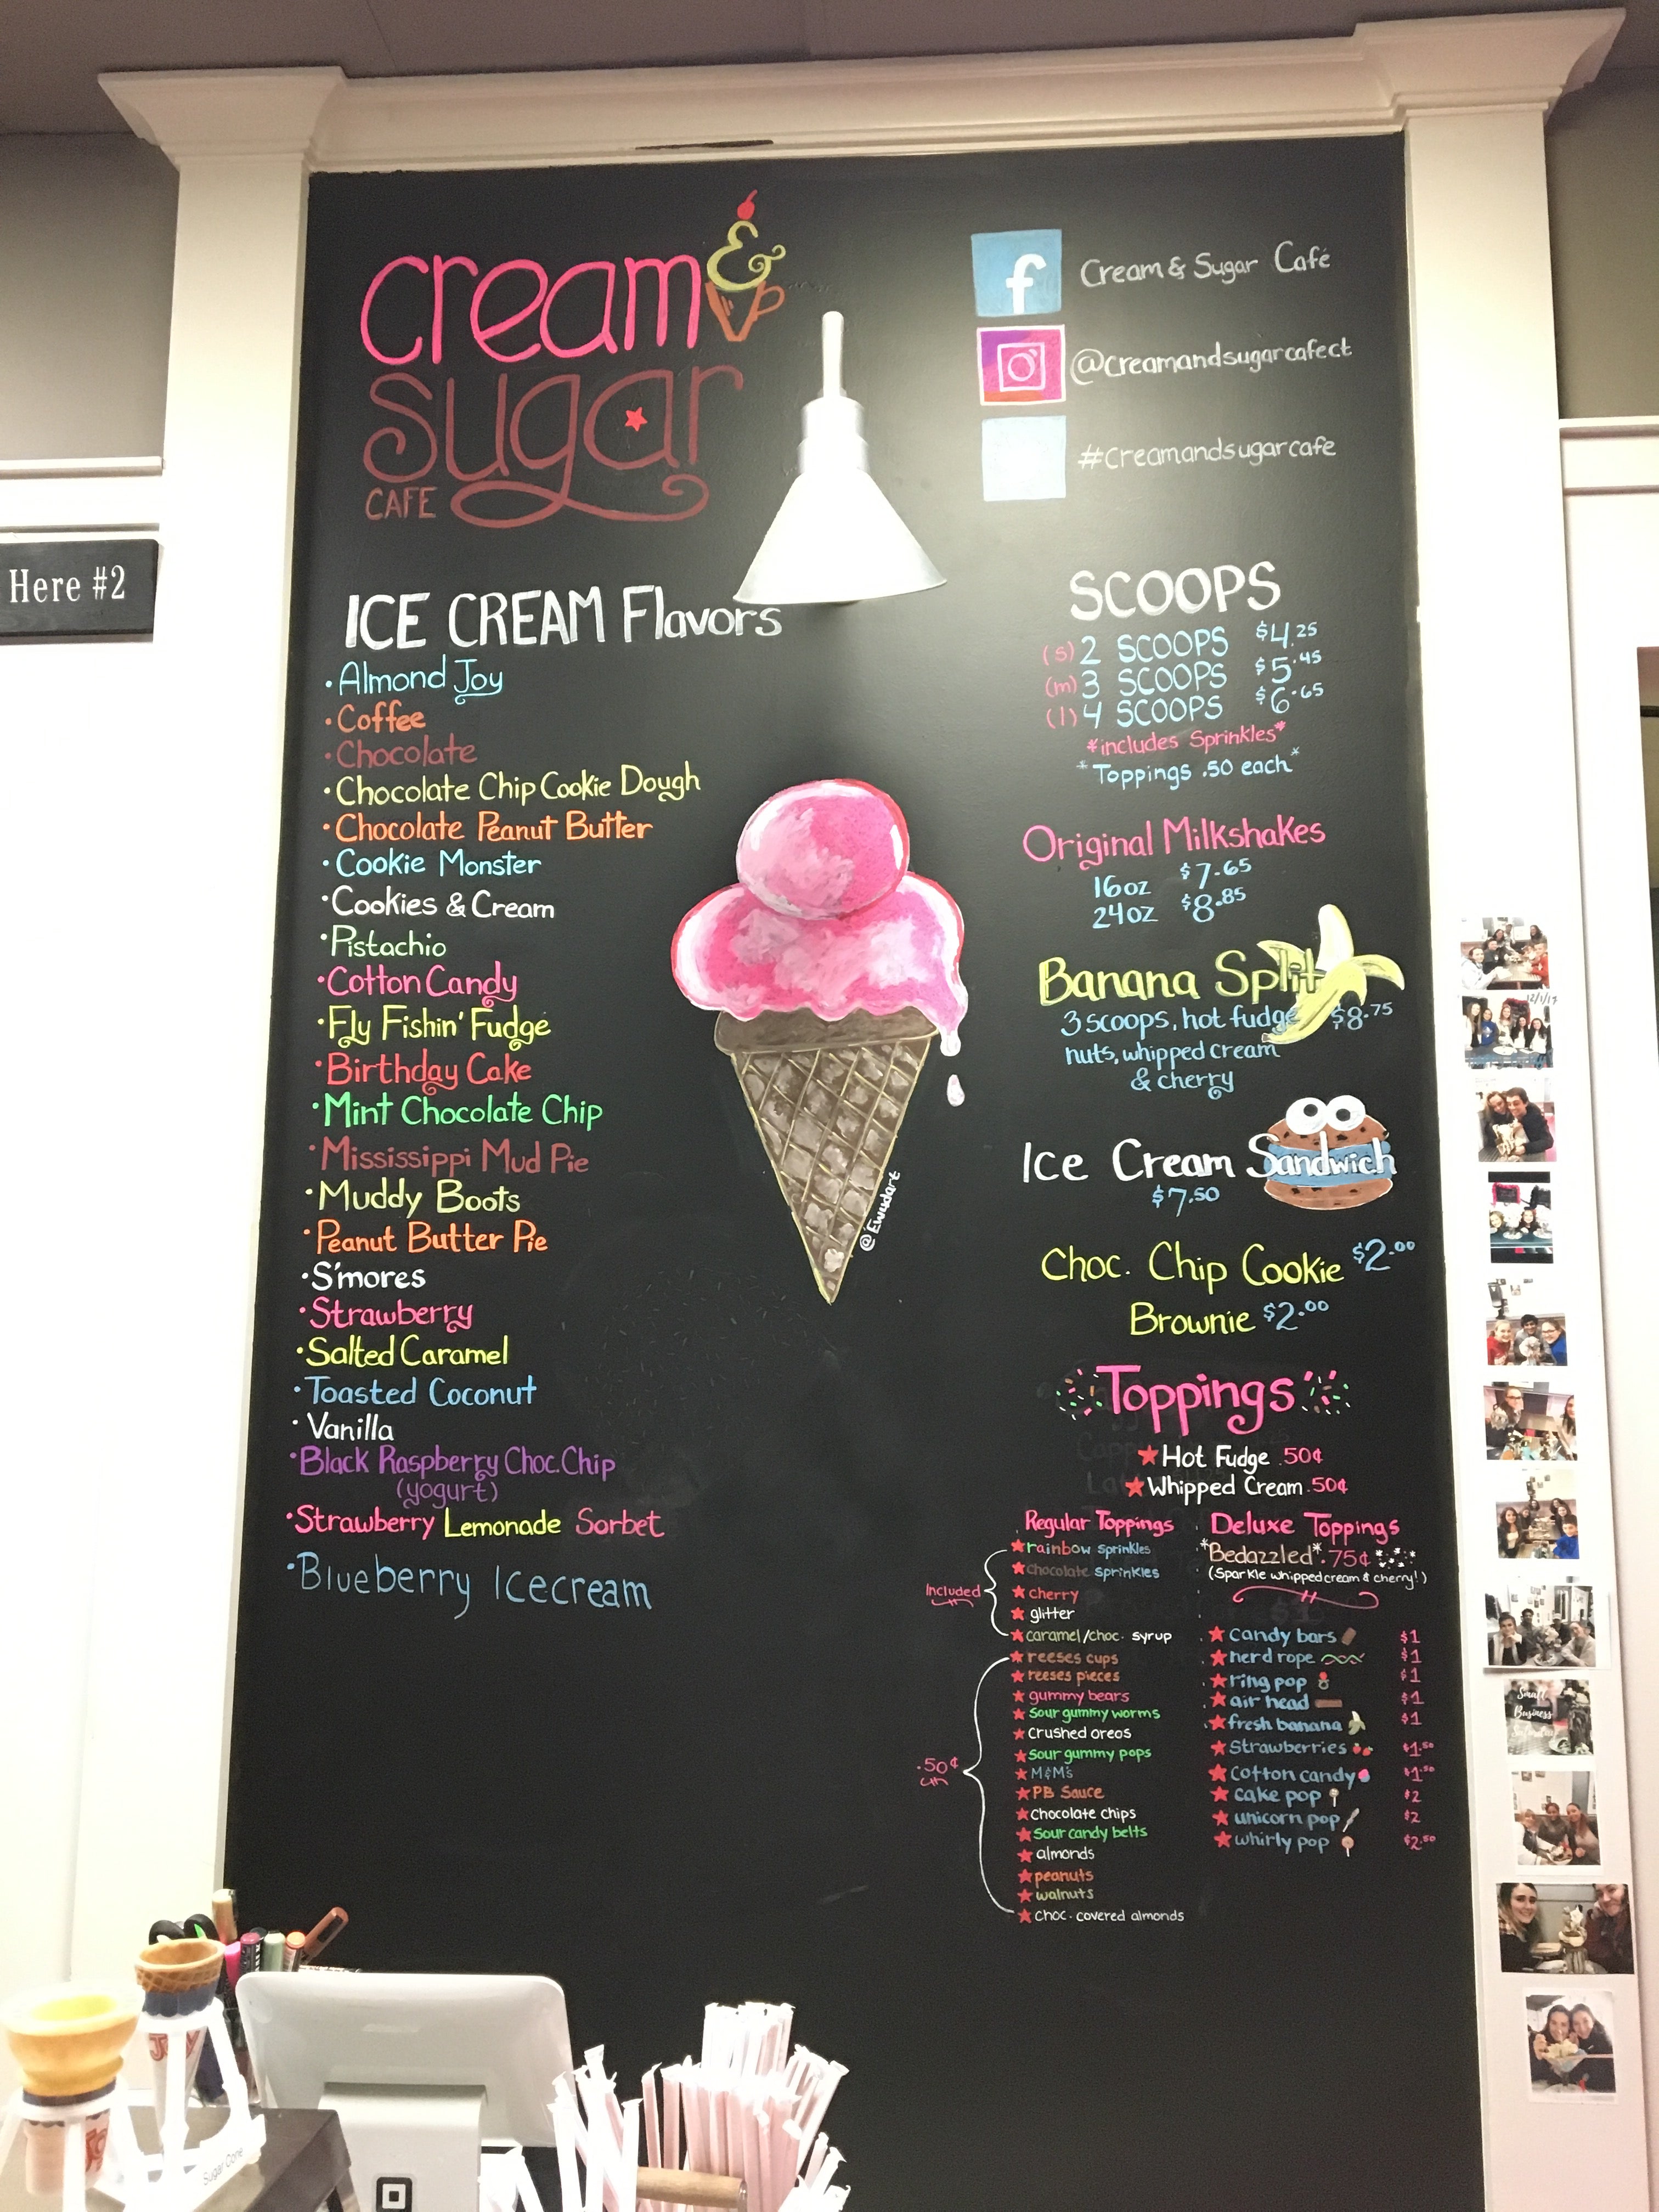 cream &
sugar
CAFE
Cream & Sugar Café
@creamandsugarcafect
#creamandsugarcafe
Here #2
ICE CREAM Flavors
• Almond Joy
• Coffee
• Chocolate
• Chocolate Chip Cookie Dough
• Chocolate Peanut Butter
• Cookie Monster
• Cookies & Cream
• Pistachio
• Cotton Candy
• Fly Fishin' Fudge
• Birthday Cake
• Mint Chocolate Chip
• Mississippi Mud Pie
• Muddy Boots
• Peanut Butter Pie
• S'mores
• Strawberry
• Salted Caramel
• Toasted Coconut
• Vanilla
• Black Raspberry Choc. Chip
(yogurt)
• Strawberry Lemonade Sorbet
• Blueberry Icecream
@Ewudart
SCOOPS
(s) 2 SCOOPS $4.25
(m) 3 SCOOPS $5.45
(l) 4 SCOOPS $6.65
*includes Sprinkles*
*Toppings .50 each*
Original Milkshakes
16oz $7.65
24oz $8.85
Banana Split
3 scoops, hot fudge $8.75
nuts, whipped cream
& cherry
Ice Cream Sandwich
$7.50
Choc. Chip Cookie $2.00
Brownie $2.00
Toppings
Hot Fudge .50¢
Whipped Cream .50¢
Regular Toppings
Included
rainbow sprinkles
chocolate sprinkles
cherry
glitter
caramel/choc. syrup
.50¢
reeses cups
reeses pieces
gummy bears
sour gummy worms
crushed oreos
sour gummy pops
M&M's
PB Sauce
chocolate chips
sour candy belts
almonds
peanuts
walnuts
choc. covered almonds
Deluxe Toppings
*Bedazzled* .75¢
(Sparkle whipped cream & cherry!)
candy bars $1
nerd rope $1
ring pop $1
air head $1
fresh banana $1
Strawberries $1.50
cotton candy $1.50
cake pop $2
unicorn pop $2
whirly pop $2.50
12/1/17
Small
Business
Saturday
Joy
Sugar Cone